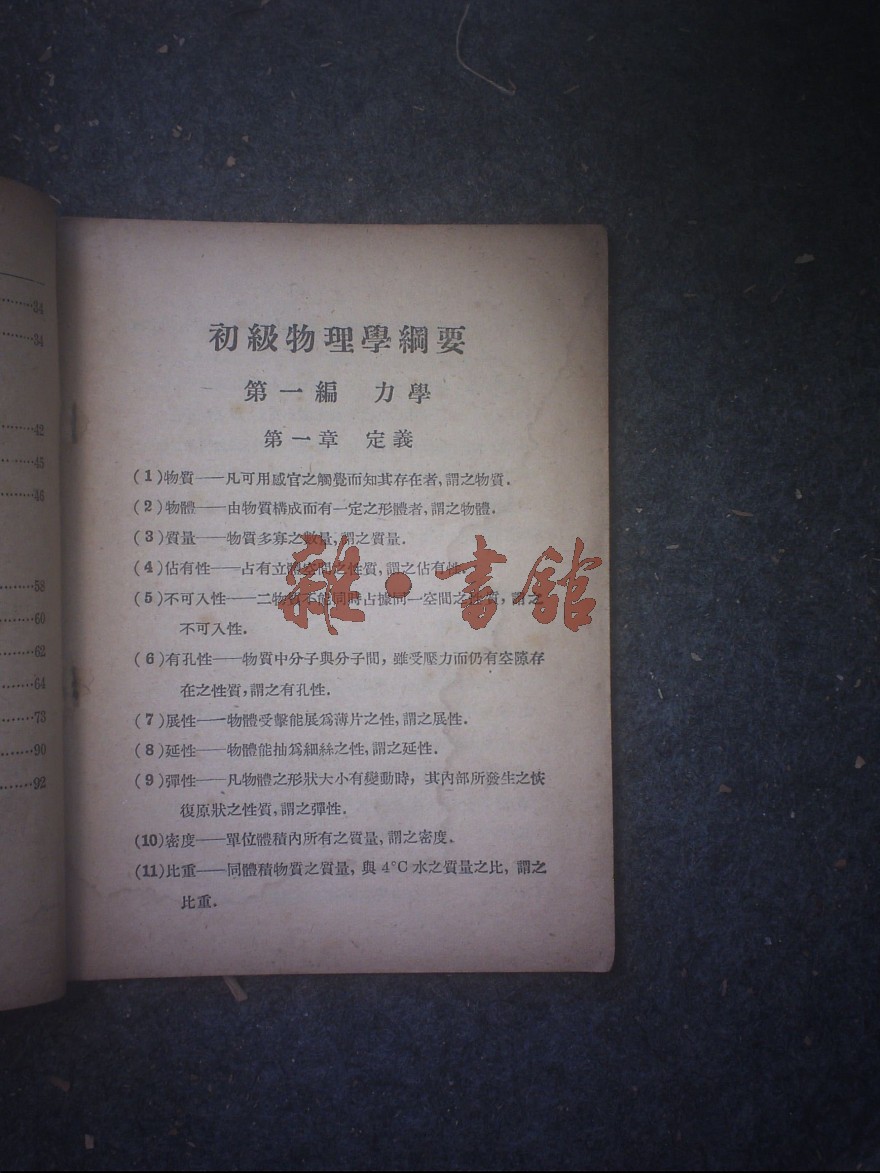 34
34
42
45
46
58
60
62
64
73
90
92
初級物理學綱要
第一編 力學
第一章 定義
(1)物質——凡可用感官之觸覺而知其存在者,謂之物質.
(2)物體——由物質構成而有一定之形體者,謂之物體.
(3)質量——物質多寡之數量,謂之質量.
(4)佔有性——占有立體空間之性質,謂之佔有性.
(5)不可入性——二物質不能同時占據同一空間之性質,謂之
不可入性.
(6)有孔性——物質中分子與分子間,雖受壓力而仍有空隙存
在之性質,謂之有孔性.
(7)展性——物體受擊能展爲薄片之性,謂之展性.
(8)延性——物體能抽爲細絲之性,謂之延性.
(9)彈性——凡物體之形狀大小有變動時,其內部所發生之恢
復原狀之性質,謂之彈性.
(10)密度——單位體積內所有之質量,謂之密度.
(11)比重——同體積物質之質量,與4°C水之質量之比,謂之
比重.
雜·書館